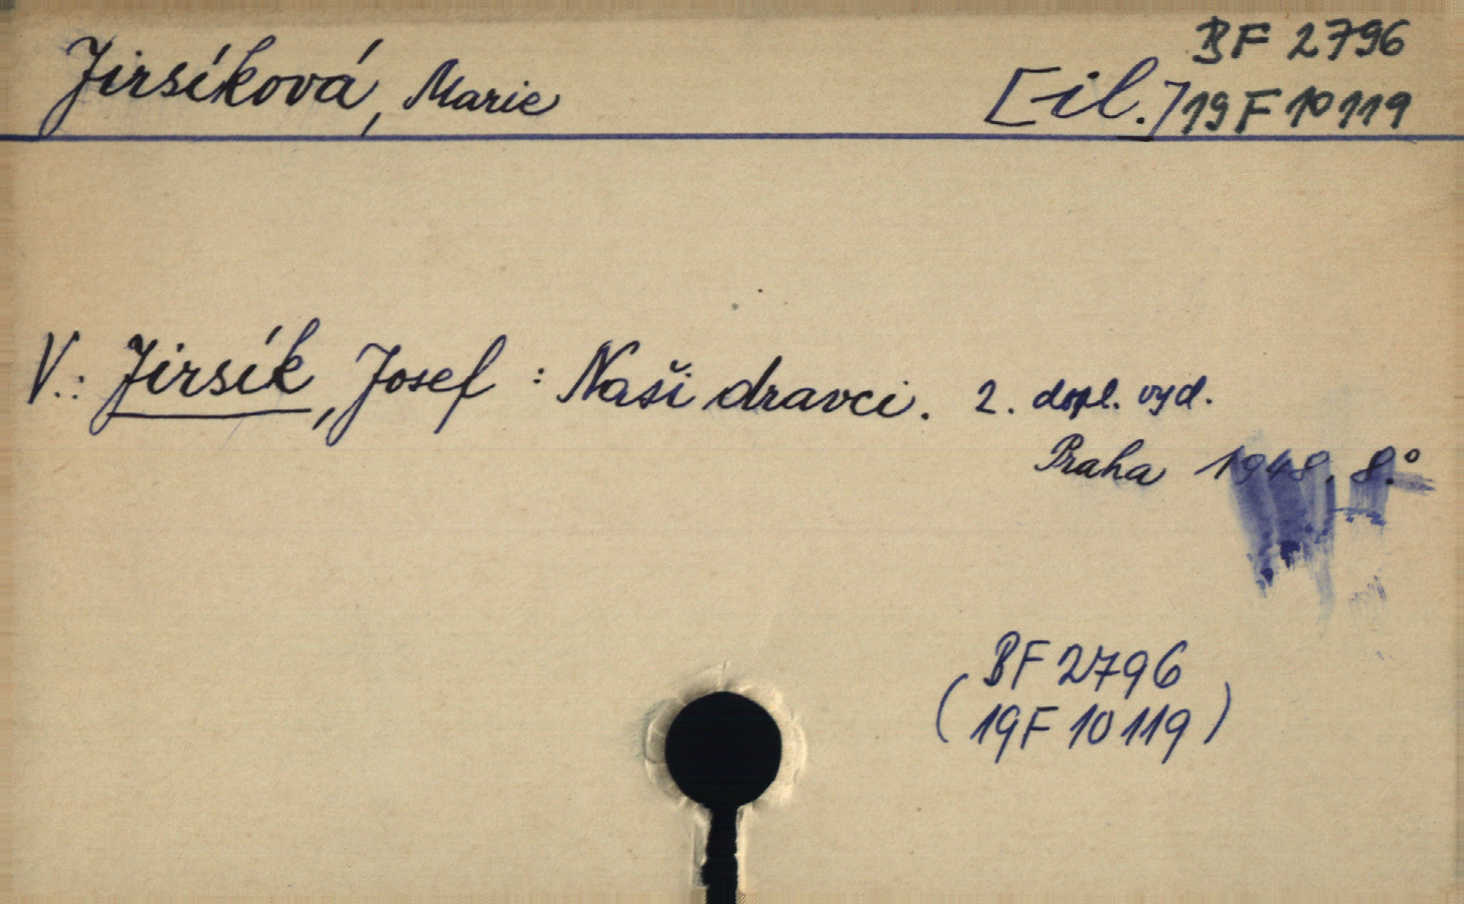 BF 2796
Jirsíková, Marie [il.] 19 F 10119
V.: Jirsík, Josef : Naši dravci. 2. dopl. vyd.
Praha 1948. 8°
BF 2796
(19F 10119)